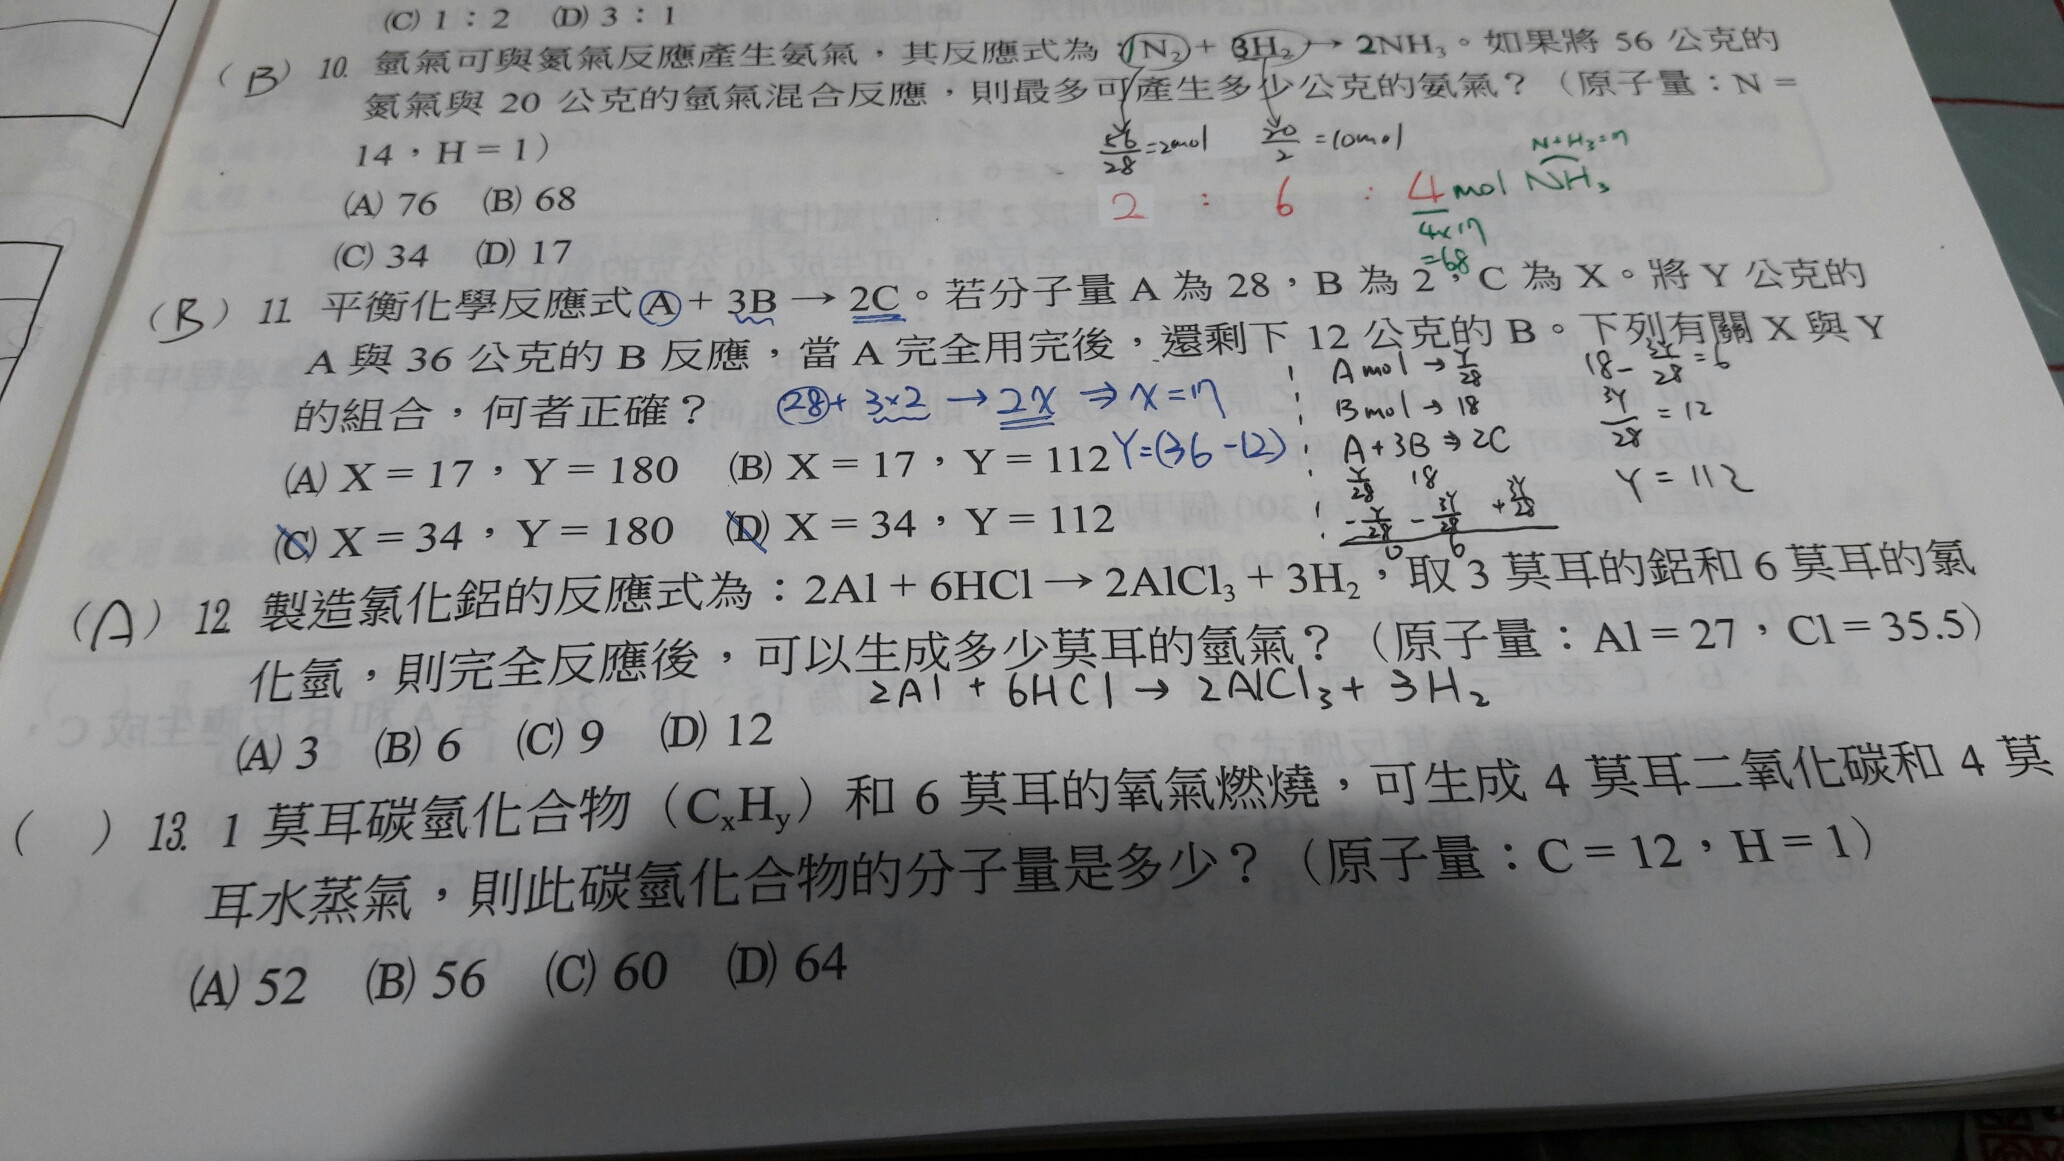 (C) 1：2 (D) 3：1
(B) 10. 氫氣可與氮氣反應產生氨氣，其反應式為：1N₂+3H₂→2NH₃。如果將 56 公克的
氮氣與 20 公克的氫氣混合反應，則最多可產生多少公克的氨氣？（原子量：N＝
14，H＝1）
56/28=2mol 20/2=10mol N+H₃=17
(A) 76 (B) 68
2 : 6 : 4 mol NH₃
4×17
=68
(C) 34 (D) 17
(B) 11. 平衡化學反應式 A＋3B→2C。若分子量 A 為 28，B 為 2，C 為 X。將 Y 公克的
A 與 36 公克的 B 反應，當 A 完全用完後，還剩下 12 公克的 B。下列有關 X 與 Y
的組合，何者正確？ 28+3×2→2X⇒X=17
(A) X＝17，Y＝180 (B) X＝17，Y＝112 Y=(36-12)
(C) X＝34，Y＝180 (D) X＝34，Y＝112
A mol → Y/28 18 - 3Y/28 = 6
B mol → 18 3Y/28 = 12
A+3B⇒2C
Y/28 18 Y=112
-Y/28 -3Y/28 +3Y/28
0 6
(A) 12 製造氯化鋁的反應式為：2Al＋6HCl→2AlCl₃＋3H₂，取 3 莫耳的鋁和 6 莫耳的氯
化氫，則完全反應後，可以生成多少莫耳的氫氣？（原子量：Al＝27，Cl＝35.5）
2Al + 6HCl → 2AlCl₃ + 3H₂
(A) 3 (B) 6 (C) 9 (D) 12
( ) 13. 1 莫耳碳氫化合物（CxHy）和 6 莫耳的氧氣燃燒，可生成 4 莫耳二氧化碳和 4 莫
耳水蒸氣，則此碳氫化合物的分子量是多少？（原子量：C＝12，H＝1）
(A) 52 (B) 56 (C) 60 (D) 64